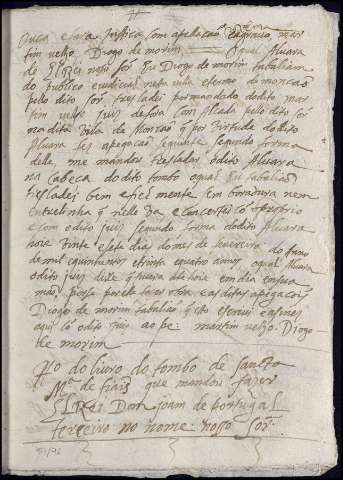 força e sara Justiça com apellação e agravo, mar
tim velho. Diogo de morim o qual alvara
de el Rei noso sor. Eu Diogo de morim tabaliam
do publico e judicial nesta vila e termo de monção
pello dito sor. tresladei per mandado do dito mar
tim velho Juiz de fora com alçada pello dito sor.
na dita vila de Monção q per virtude do dito
Alvara fez apegação seguinte segundo forma
delle me mandou tresladar o dito Alvara
na cabeça do dito tombo o qual Eu tabaliam
tresladei bem e fielmente sem borradura nem
Entrelinha q nelle va e concertei co proprio
e com o dito Juiz segundo forma do dito Alvara
hoje vinte e sete dias do mes de fevereiro do anno
de mil e quinhentos e trinta e quatro annos o qual Alvara
o dito Juiz disse q ficava ate hoje em dia em sua
mão, para per elle fazer obra e as ditas apegações
Diogo de morim tabalião q isto escrevi e asinei
aqui co o dito Juiz ao pe: martim velho. Diogo
de morim
Tto do livro do tombo de sancta
Ma. de fiais que mandou fazer
El Rei Dom Joam de portugal
terceiro no nome: nosso Sor.